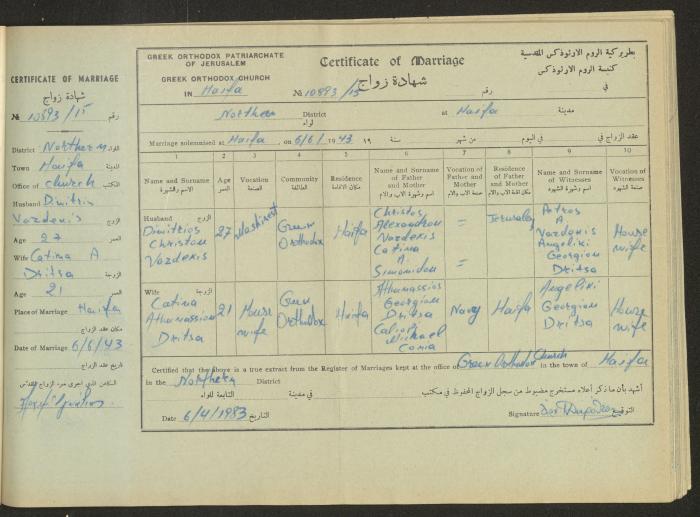 CERTIFICATE OF MARRIAGE
شهادة زواج
№ 10893/15 رقم
District Northern اللواء
Town Haifa المدينة
Office of church المكتب
Husband Dimitrin
Vozdekis الزوج
Age 27 العمر
Wife Catina A
Dritsa الزوجة
Age 21 العمر
Place of Marriage Haifa
مكان عقد الزواج
Date of Marriage 6/6/43
تاريخ عقد الزواج
GREEK ORTHODOX PATRIARCHATE
OF JERUSALEM
GREEK ORTHODOX CHURCH
IN Haifa
Certificate of Marriage
شهادة زواج
№ 10893/15 رقم
بطريركية الروم الاورثوذكس المقدسية
كنيسة الروم الاورثوذكس
في
Northern District at Haifa مدينة
لواء
Marriage solemnised at Haifa, on 6/6/1943 19 سنة من شهر في اليوم عقد الزواج في
1 2 3 4 5 6 7 8 9 10
Name and Surname
اسم وشهرة
Age
العمر
Vocation
الصنعة
Community
الطائفة
Residence
مكان الاقامة
Name and Surname of Father and Mother
اسم وشهرة الاب والام
Vocation of Father and Mother
صنعة الاب والام
Residence of Father and Mother
مكان اقامة الاب والام
Name and Surname of Witnesses
اسم وشهرة الشهود
Vocation of Witnesses
صنعة الشهود
Husband الزوج
Dimitrios
Christou
Vozdekis
27
Mashinest
Greek
Orthodox
Haifa
Christos
Alexandrou
Vozdekis
Catina
A.
Simonidou
=
=
Jerusalem
Petros
A.
Vozdekis
Angeliki
Georgiou
Dritsa
House
wife
Wife الزوجة
Catina
Athanassiou
Dritsa
21
House
wife
Greek
Orthodox
Haifa
Athanassios
Georgiou
Dritsa
Michael
Navy
Haifa
Angeliki
Georgiou
Dritsa
House
wife
Certified that the above is a true extract from the Register of Marriages kept at the office of Greek Orthodox Church in the town of Haifa
in the Northern District
التابعة للواء في مدينة
أشهد بأن ما ذكر أعلاه مستخرج مضبوط من سجل الزواج المحفوظ في مكتب
Date 6/4/1983 التاريخ
Signature التوقيع